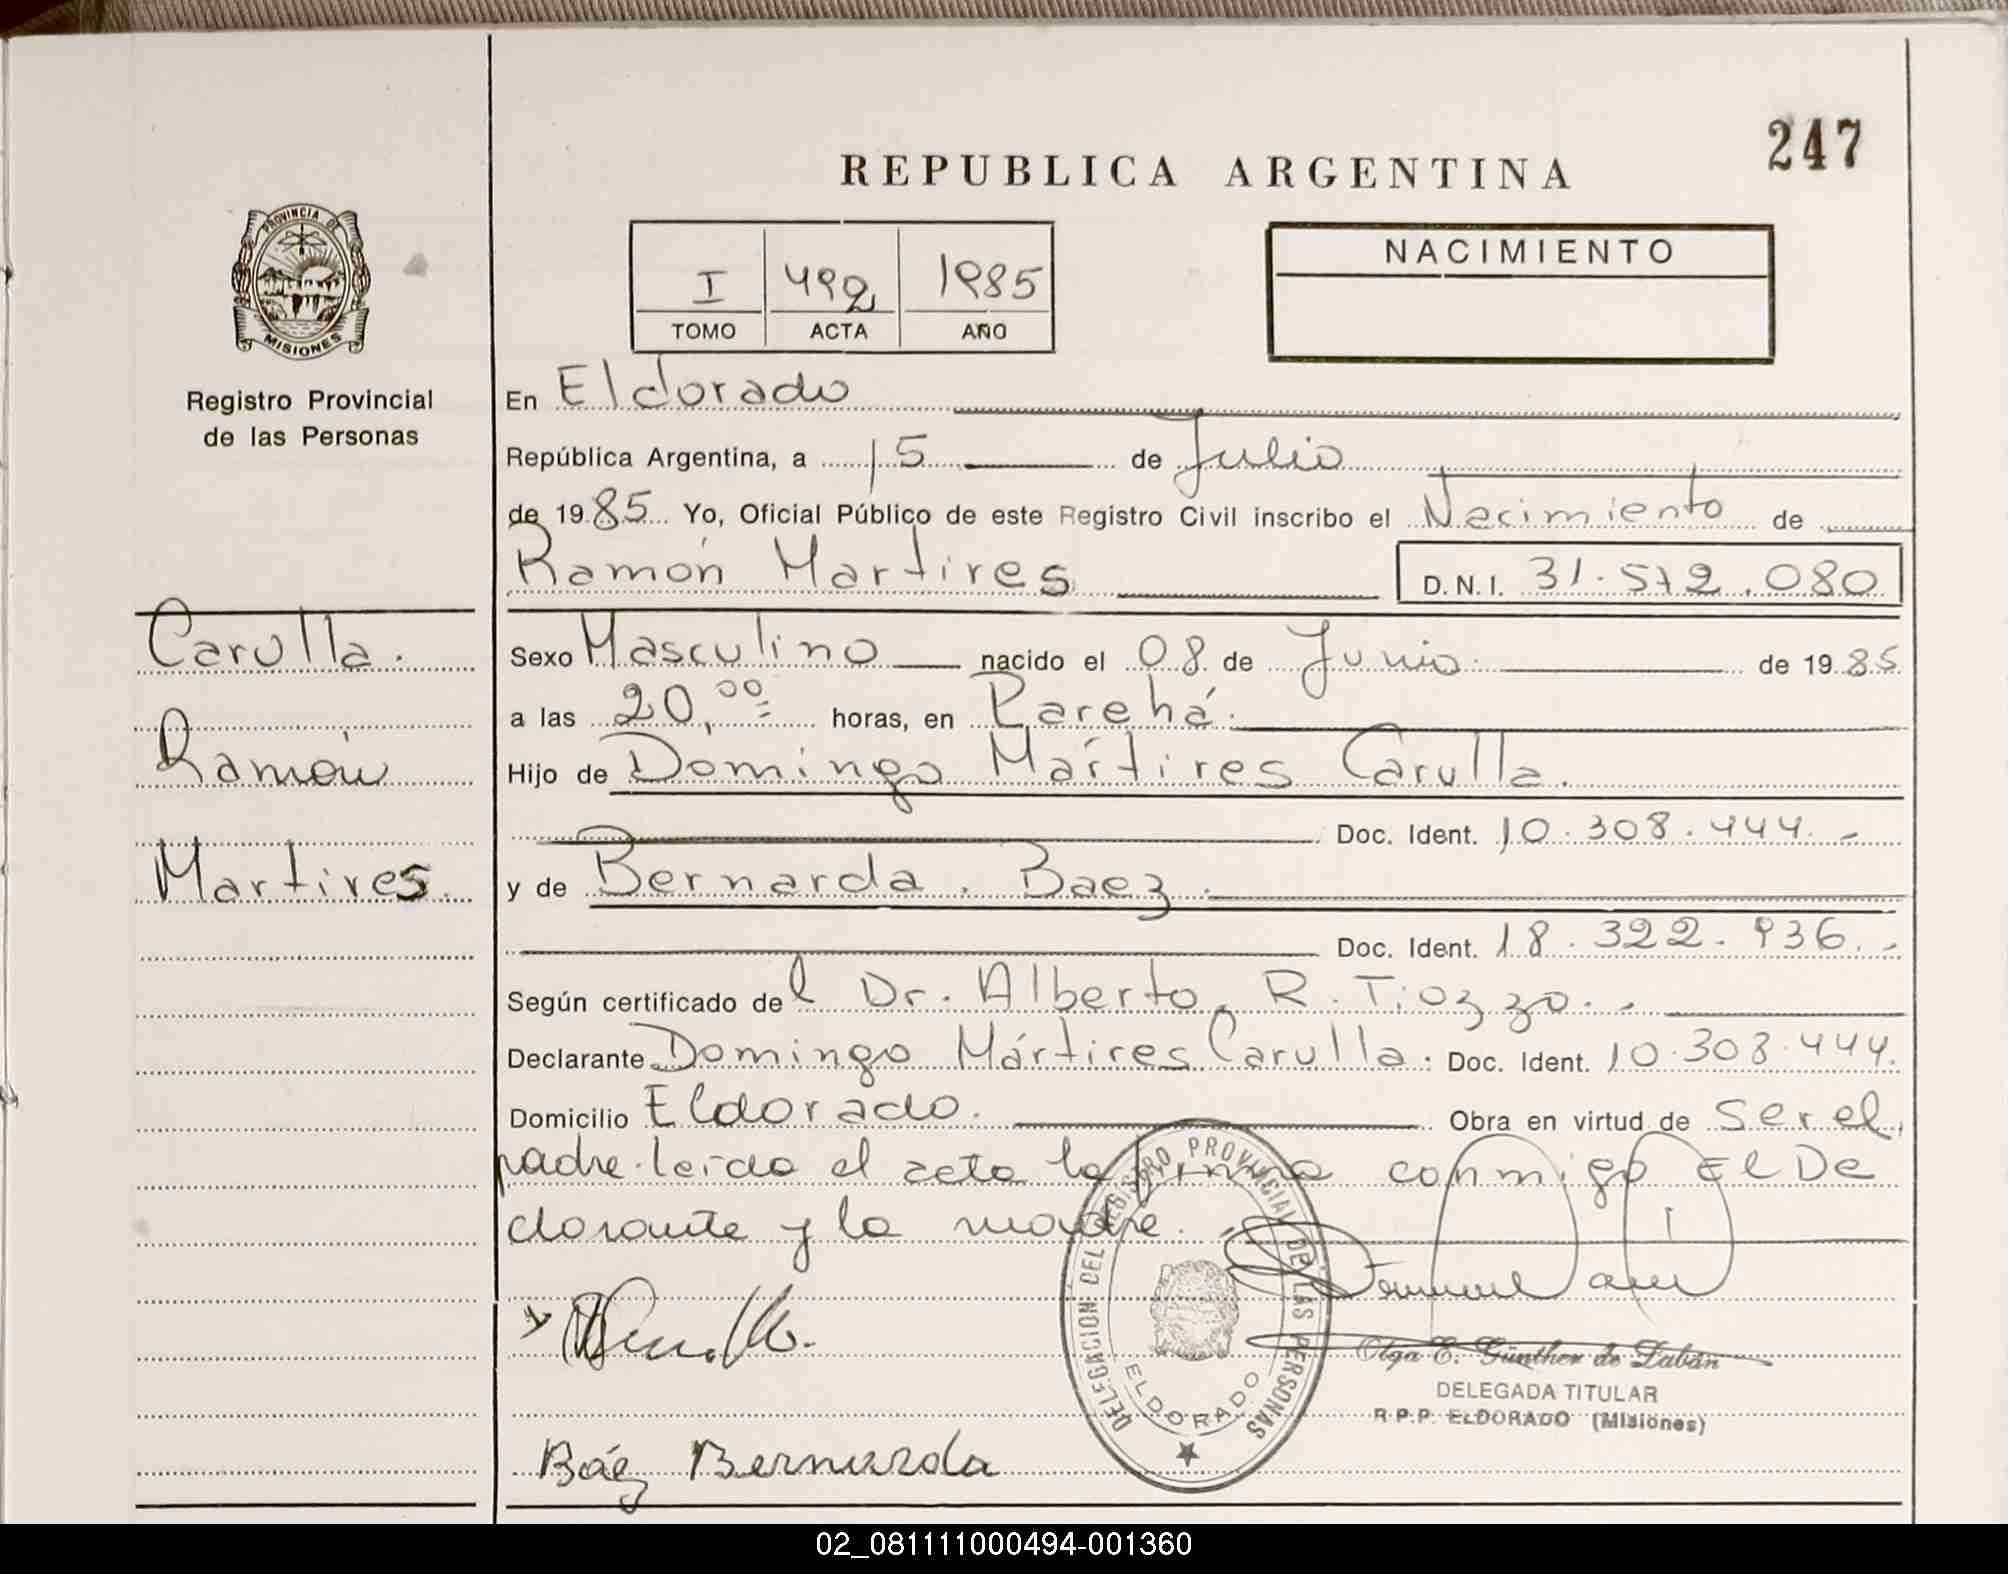 247
REPUBLICA ARGENTINA
PROVINCIA DE
MISIONES
Registro Provincial
de las Personas
I 492 1985
TOMO ACTA AÑO
NACIMIENTO
En Eldorado
República Argentina, a 15 de Julio
de 1985 Yo, Oficial Público de este Registro Civil inscribo el Nacimiento de
Ramón Martires D.N.I. 31.572.080
Carulla.
Ramón
Martires.
Sexo Masculino nacido el 08 de Junio de 1985
a las 20,00 horas, en Parehá.
Hijo de Domingo Mártires Carulla.
Doc. Ident. 10.308.444.-
y de Bernarda. Baez.
Doc. Ident. 18.322.936.-
Según certificado del Dr. Alberto R. Tiozzo.-
Declarante Domingo Mártires Carulla. Doc. Ident. 10.308.444.
Domicilio Eldorado. Obra en virtud de ser el
padre. leida el acta la firma conmigo El De
clarante y la madre.
DELEGACION DEL REGISTRO PROVINCIAL DE LAS PERSONAS
ELDORADO
Olga E. Günther de Labán
DELEGADA TITULAR
R.P.P. ELDORADO (Misiones)
Báez Bernarda
02_081111000494-001360